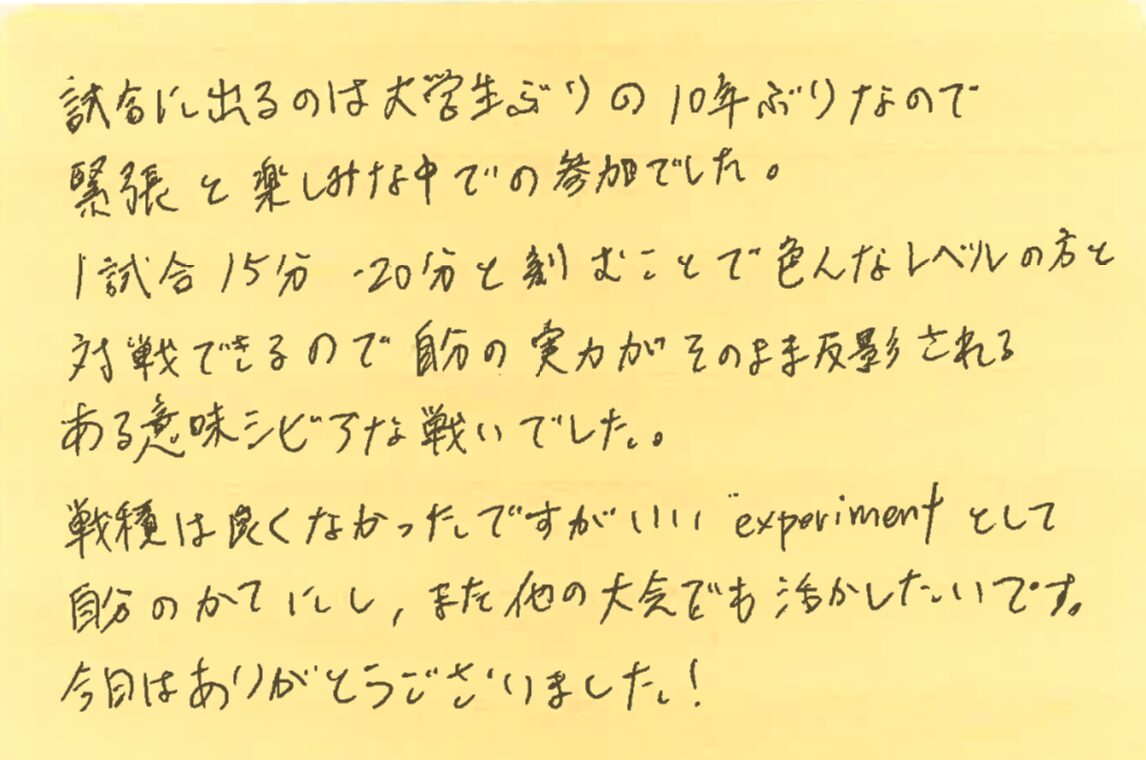 試合に出るのは大学生ぶりの10年ぶりなので
緊張と楽しみな中での参加でした。
1試合15分-20分と刻むことで色んなレベルの方と
対戦できるので自分の実力がそのまま反影される
ある意味シビアな戦いでした。
戦積は良くなかったですがいい"experimentとして
自分のかてにし,また他の大会でも活かしたいです。
今日はありがとうございました!